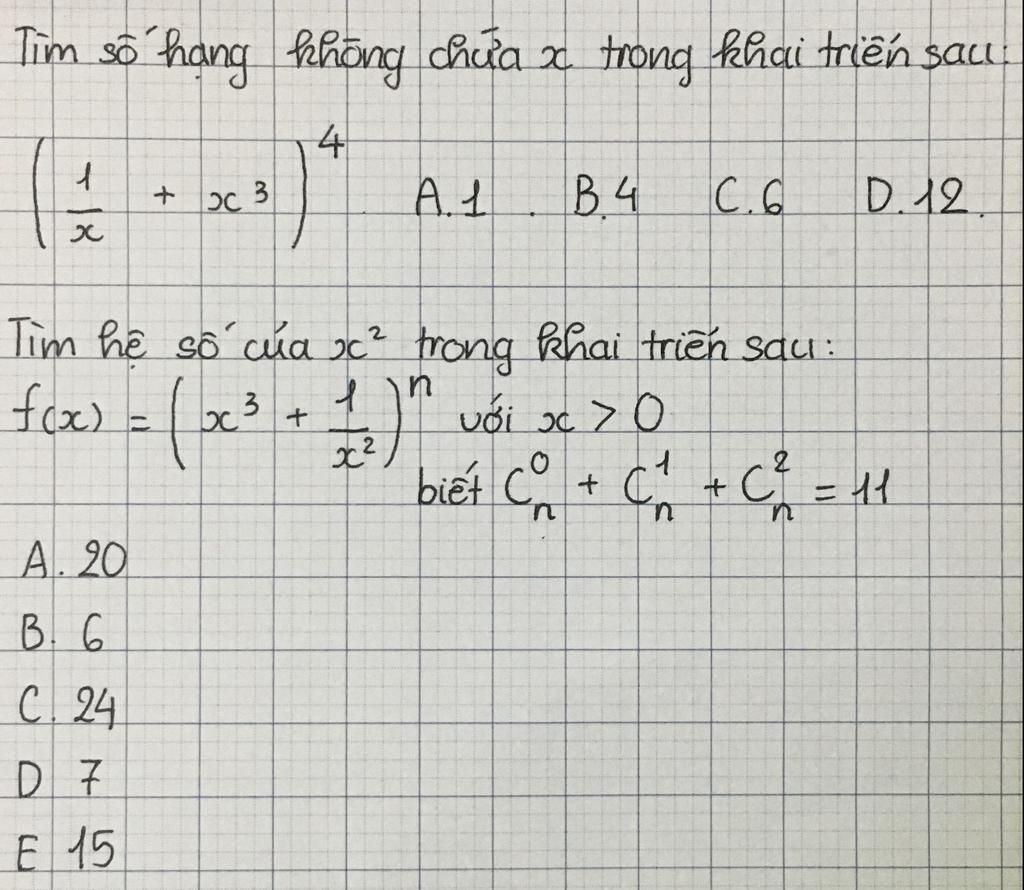 Tìm số hạng không chứa x trong khai triển sau:
(1/x + x³)⁴ A.1. B.4 C.6 D.12.
Tìm hệ số của x² trong khai triển sau:
f(x) = (x³ + 1/x²)ⁿ với x > 0
biết Cₙ⁰ + Cₙ¹ + Cₙ² = 11
A. 20
B. 6
C. 24
D 7
E 15